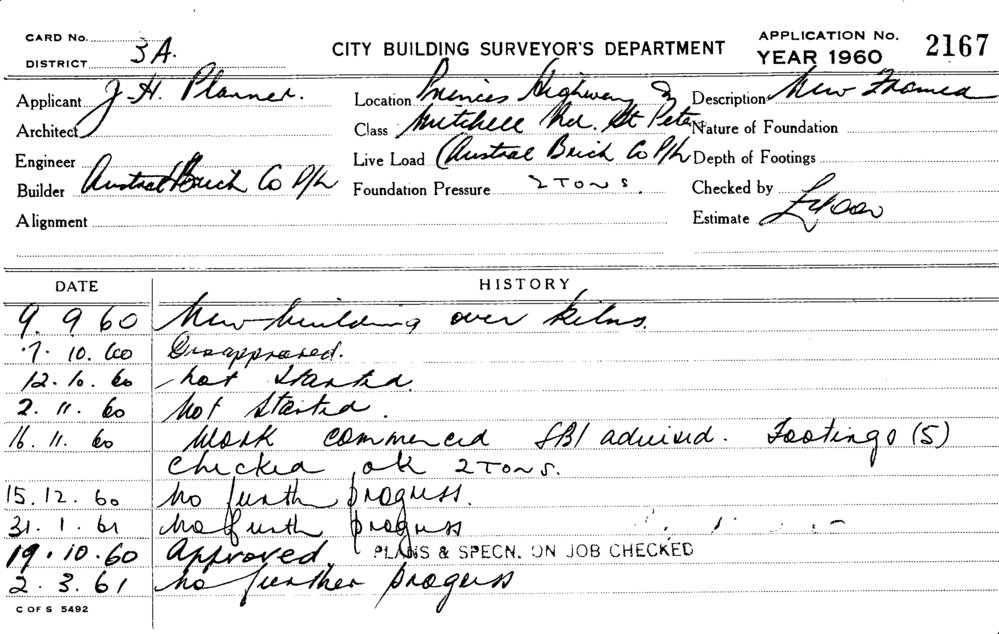 CARD No.
DISTRICT 3A.
CITY BUILDING SURVEYOR'S DEPARTMENT
APPLICATION No. 2167
YEAR 1960
Applicant J. H. Planner.
Location Princes Highway &
Description New Framed
Architect
Class Mitchell Rd. St Peters
Nature of Foundation
Engineer
Live Load (Austral Brick Co P/L
Depth of Footings
Builder Austral Brick Co P/L
Foundation Pressure 2 TONS.
Checked by
Alignment
Estimate
DATE HISTORY
9. 9 60 New building over kilns.
7. 10. 60 Disapproved.
12. 10. 60 Not Started.
2. 11. 60 Not Started.
16. 11. 60 Work commenced SBI advised. Footings (5)
checked ok 2 TONS.
15. 12. 60 No furth progress.
31. 1. 61 No furth progress
19. 10. 60 Approved PLANS & SPECN. ON JOB CHECKED
2. 3. 61 No further progress
C OF S 5492